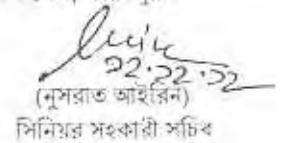 ১২.১২.১২
(নুসরাত আইরিন)
সিনিয়র সহকারী সচিব